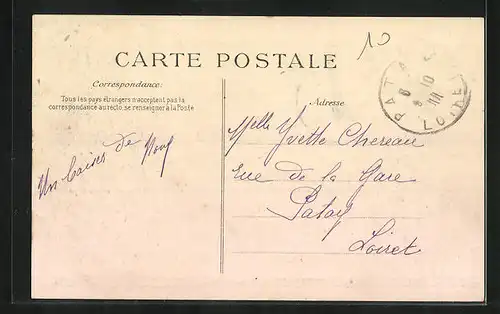 10
CARTE POSTALE
Correspondance:
Tous les pays étrangers n'acceptent pas la
correspondance au recto, se renseigner à la Poste
Adresse
PATAY
LOIRET
Melle Yvette Chereau
rue de la Gare
Patay
Loiret
Un baiser de